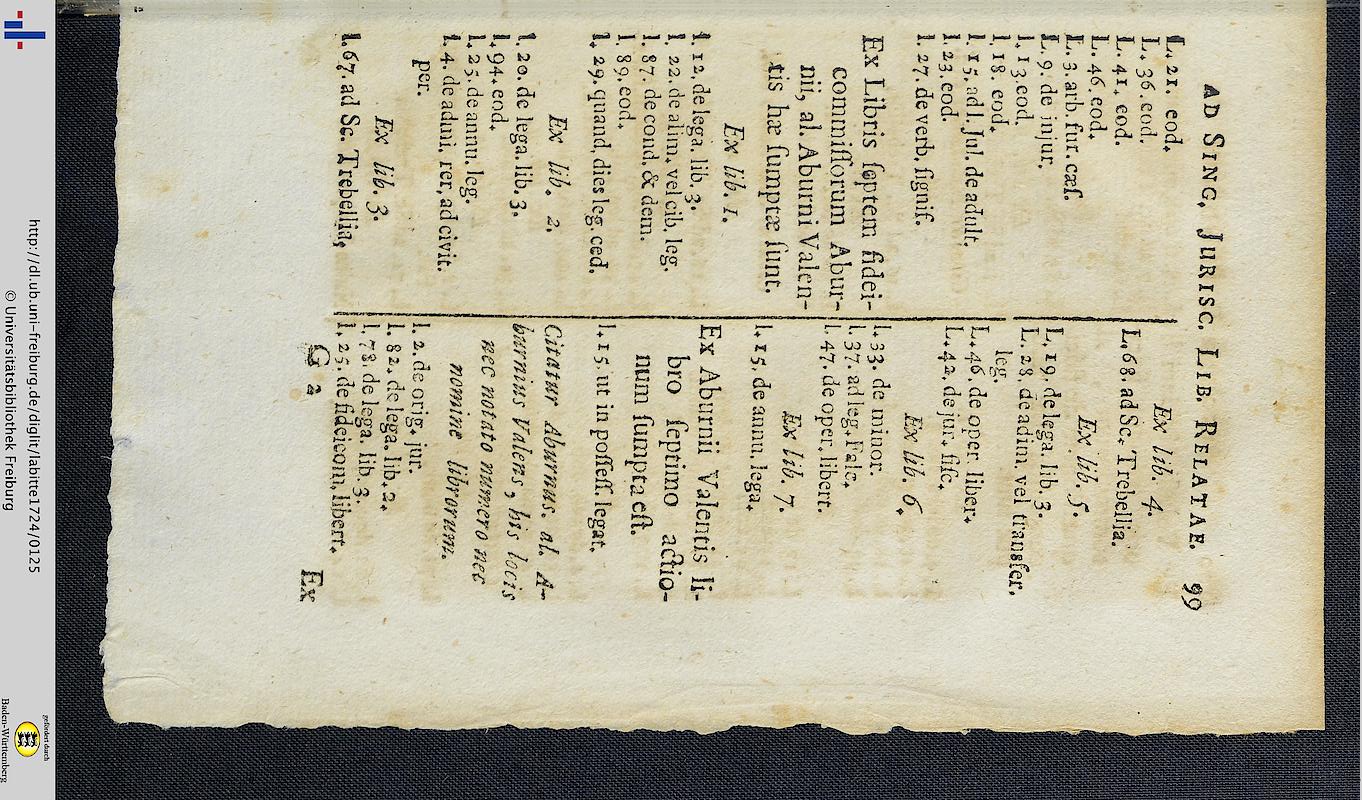 AD SING. JURISC. LIB. RELATAE. 99
L. 21. eod.
L. 36. eod.
L. 41. eod.
L. 46. eod.
L. 3. arb. fur. cæſ.
L. 9. de injur.
l. 13. eod.
l. 18. eod.
l. 15. ad l. Jul. de adult.
l. 23. eod.
l. 27. de verb. ſignif.
Ex Libris ſeptem fidei-
commiſſorum Abur-
nii, al. Aburni Valen-
tis hæ ſumptæ ſunt.
Ex lib. 1.
l. 12. de lega. lib. 3.
l. 22. de alim. vel cib. leg.
l. 87. de cond. & dem.
l. 89. eod.
l. 29. quand. dies leg. ced.
Ex lib. 2.
l. 20. de lega. lib. 3.
l. 94. eod.
l. 25. de annu. leg.
l. 4. de admi. rer. ad civit.
per.
Ex lib. 3.
l. 67. ad Sc. Trebellia.
Ex lib. 4.
L. 68. ad Sc. Trebellia.
Ex lib. 5.
L. 19. de lega. lib. 3.
L. 28. de adim. vel transfer.
leg.
L. 46. de oper. liber.
L. 42. de jur. fiſc.
Ex lib. 6.
l. 33. de minor.
l. 37. ad leg. Falc.
l. 47. de oper. libert.
Ex lib. 7.
l. 15. de annu. lega.
Ex Aburnii Valentis li-
bro ſeptimo actio-
num ſumpta eſt.
l. 15. ut in poſſeſſ. legat.
Citatur Aburnus. al. A-
burnius Valens, his locis
nec notato numero nec
nomine librorum.
l. 2. de orig. jur.
l. 82. de lega. lib. 2.
l. 78. de lega. lib. 3.
l. 25. de fideicom. libert.
G 2 Ex
http://dl.ub.uni-freiburg.de/diglit/labitte1724/0125
© Universitätsbibliothek Freiburg
gefördert durch
Baden-Württemberg